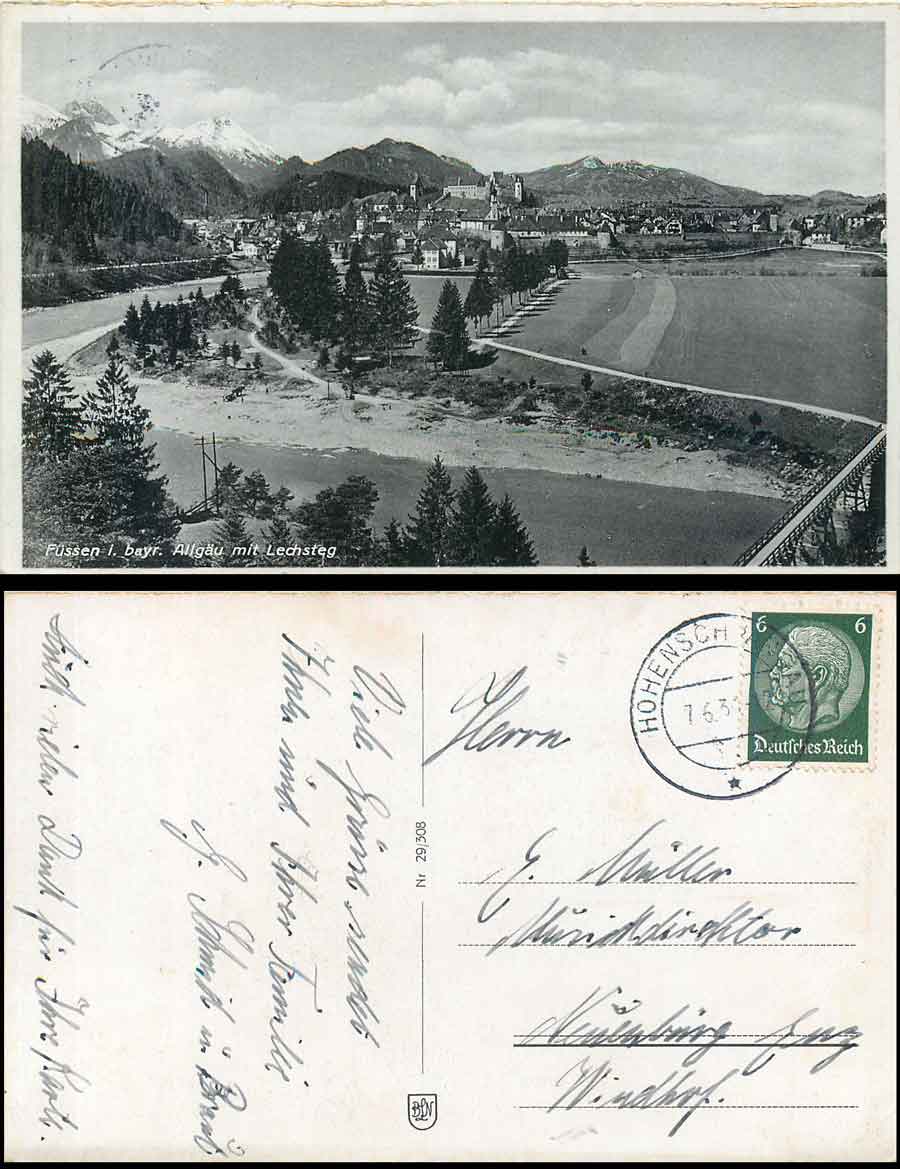 Füssen i. bayr. Allgäu mit Lechsteg
Viele Grüsse sendet
Ihnen und Ihrer Familie
Schmid u Braut
Auch vielen Dank für Ihre Karte.
Nr 29/308
BLN
HOHENSCH
7.6.3
6 6
Deutsches Reich
Herrn
E. Müller
Musikdirektor
Neuenbürg Enz
Windhof.